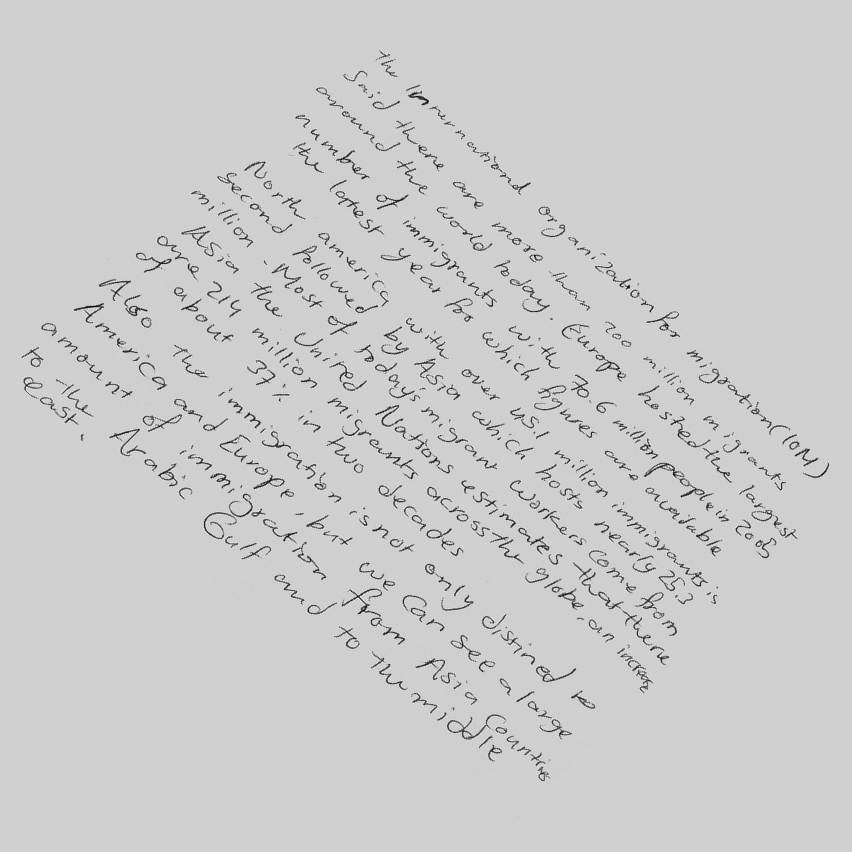 the Immernationd organization for migration (IOM)
Said there are more than 200 million migrants
around the world today. Europe hosted the largest
number of immigrants with 70.6 million people in 2005
the latest year for which figures are available
North america with over 45.1 million immigrants is
second followed by Asia which hosts nearly 25.3
million. Most of todays migrant workers come from
Asia the United Nations estimates that there
are 214 million migrants across the globe, an increase
of about 37% in two decades
Also the immigration is not only distined to
America and Europe, but we can see a large
amount of immigration from Asia Countries
to the Arabic Gulf and to the middle
east.